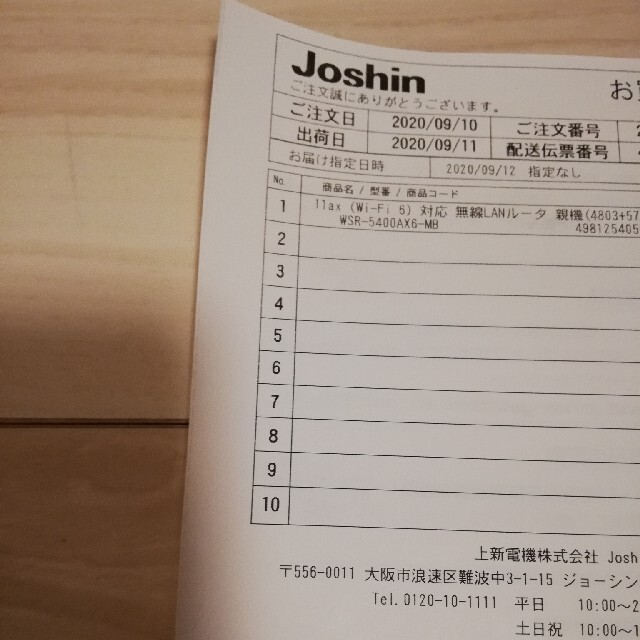 Joshin
お
ご注文誠にありがとうございます。
ご注文日 2020/09/10 ご注文番号 2
出荷日 2020/09/11 配送伝票番号
お届け指定日時 2020/09/12 指定なし
No. 商品名 / 型番 / 商品コード
1 11ax (Wi-Fi 6) 対応 無線LANルータ 親機(4803+57
WSR-5400AX6-MB 498125405
2
3
4
5
6
7
8
9
10
上新電機株式会社 Josh
〒556-0011 大阪市浪速区難波中3-1-15 ジョーシン
Tel.0120-10-1111 平日 10:00～2
土日祝 10:00～1